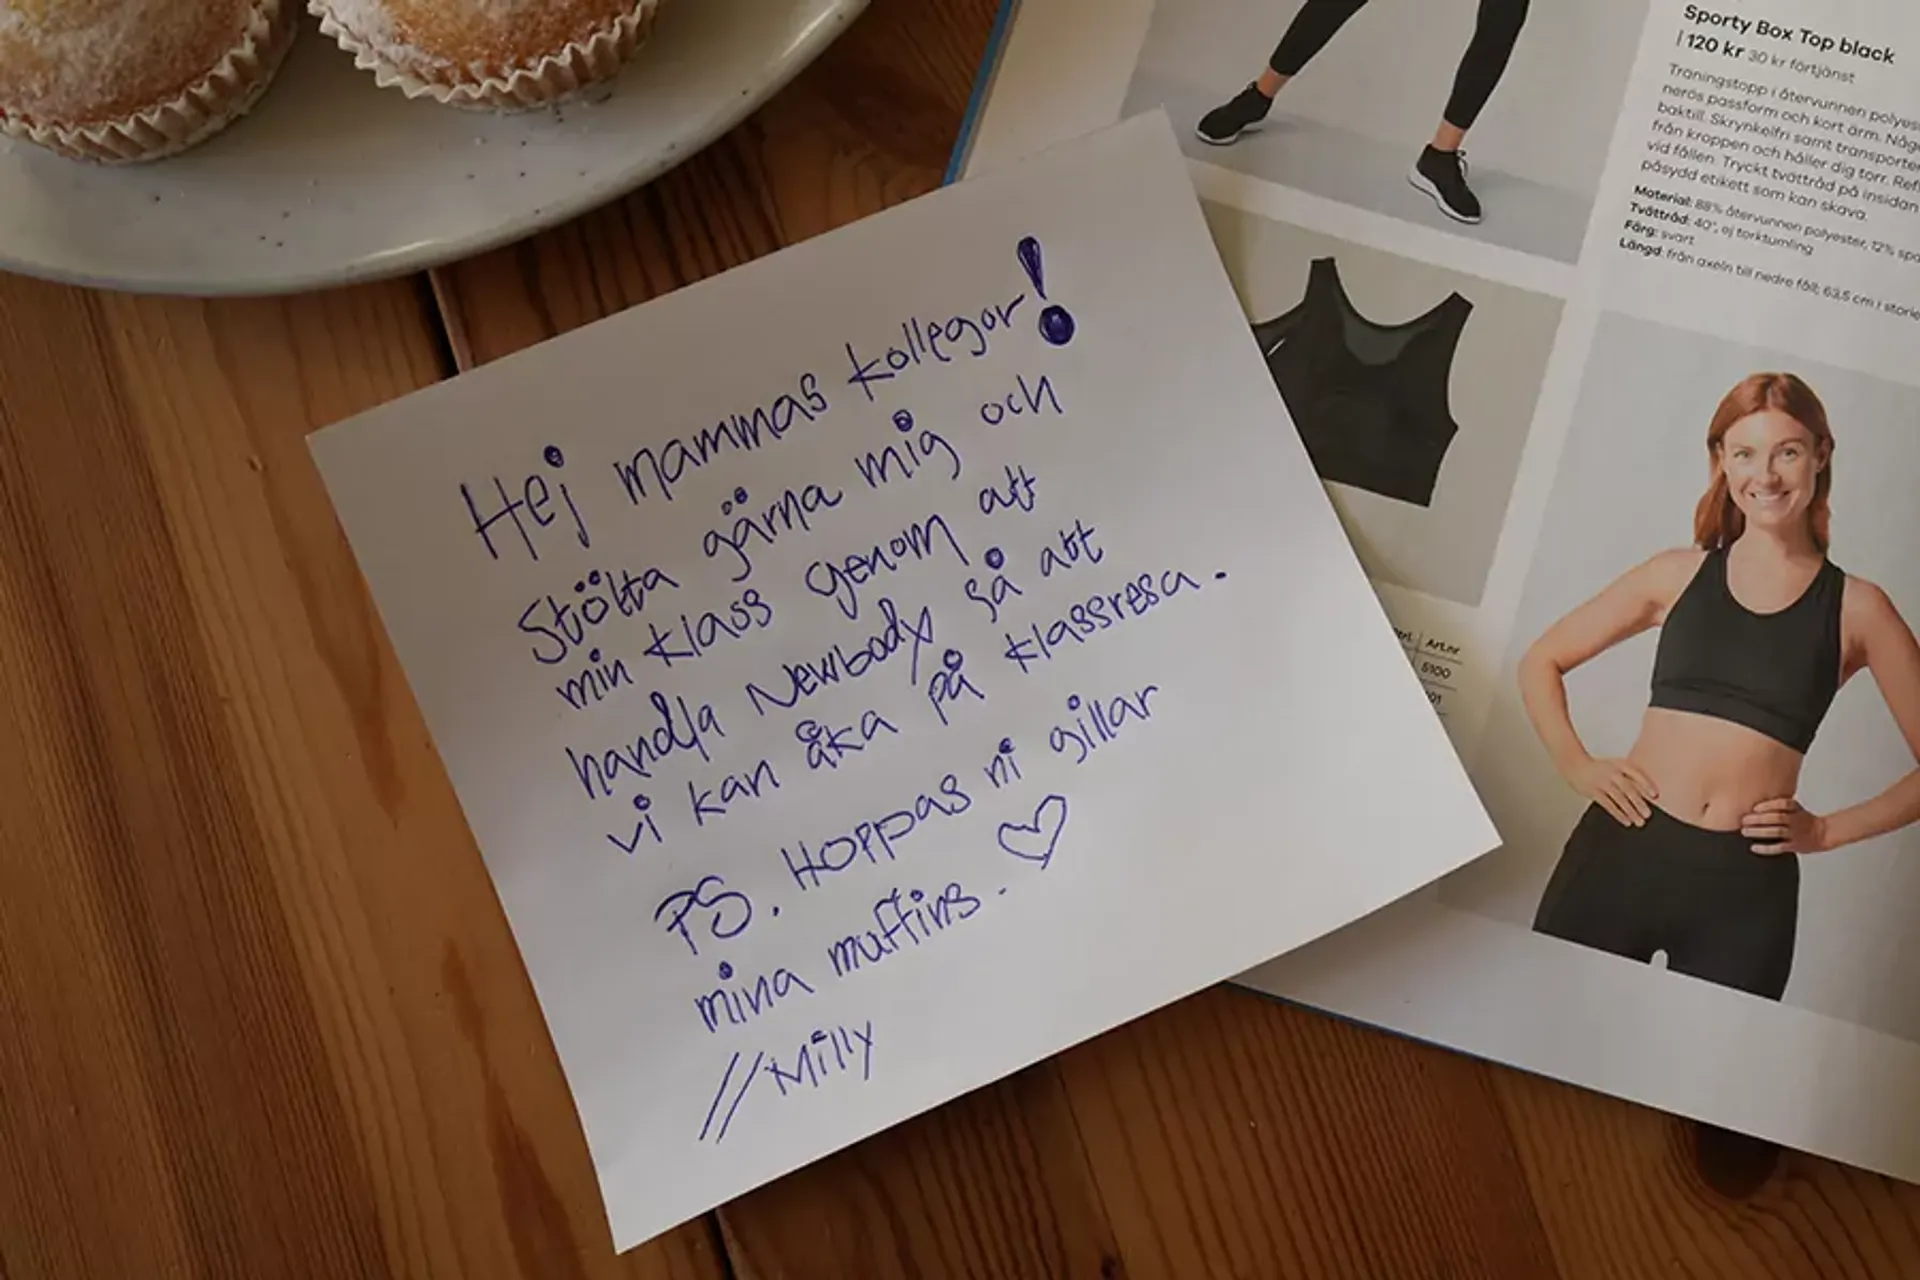 Hej mammas kollegor!
Stötta gärna mig och
min klass genom att
handla Newbody så att
vi kan åka på klassresa.
PS. Hoppas ni gillar
mina muffins. ♡
//Milly
Sporty Box Top black
| 120 kr 30 kr förtjänst
Träningstopp i återvunnen
nerös passform och kort ärm.
baktill. Skrynkelfri samt
från kroppen och håller dig torr.
vid fållen. Tryckt tvättråd på insidan
påsydd etikett som kan skava.
Material: 88% återvunnen polyester, 12%
Tvättråd: 40°, ej torktumling
Färg: svart
Längd: från axeln till nedre fåll; 63,5 cm i
Art.nr
5100